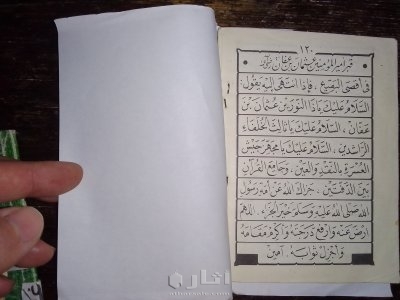 ١٢٠
قبر أمير المؤمنين عثمان بن عفان
فى أقصى البقيع ، فإذا انتهى إليه يقول
السلام عليك يا ذا النورين عثمان بن
عفان ، السلام عليك يا ثالث الخلفاء
الراشدين ، السلام عليك يا مجهز جيش
العسرة بالنقد والعين ، وجامع القرآن
بين الدفتين ، جزاك الله عن أمة رسول
الله صلى الله عليه وسلم خير الجزاء . اللهم
ارض عنه وارفع درجته وأكرم مقامه
وأجزل ثوابه . آمين